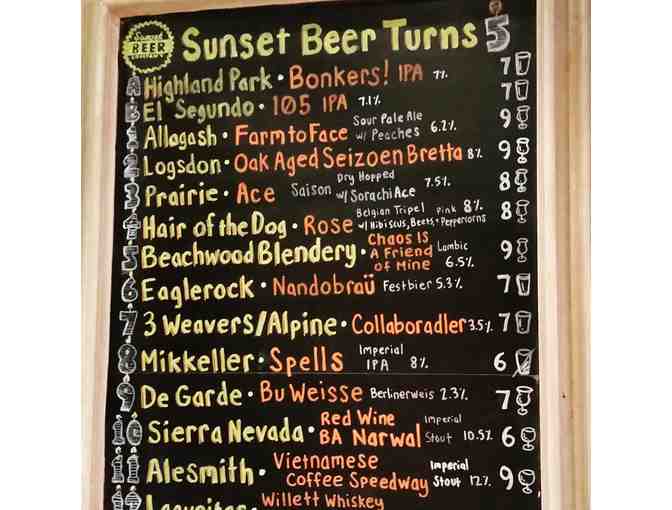 Sunset BEER
Sunset Beer Turns 5
A Highland Park · Bonkers! IPA 7% 7
B El Segundo · 105 IPA 7.1% 7
1 Allagash · Farm to Face Sour Pale Ale w/ Peaches 6.2% 9
2 Logsdon · Oak Aged Seizoen Bretta 8% 9
3 Prairie · Ace Saison Dry Hopped w/ Sorachi Ace 7.5% 8
Hair of the Dog · Rose Belgian Tripel w/ Hibiscus, Beets, + Pink Peppercorns 8% 8
5 Beachwood Blendery · Chaos Is A Friend of Mine Lambic 6.5% 9
6 Eaglerock · Nandobraü Festbier 5.3% 7
7 3 Weavers/Alpine · Collaboradler 3.5% 7
8 Mikkeller · Spells Imperial IPA 8% 6
9 De Garde · Bu Weisse Berlinerweis 2.3% 7
10 Sierra Nevada · Red Wine BA Narwal Imperial Stout 10.5% 6
11 Alesmith · Vietnamese Coffee Speedway Imperial Stout 12% 9
12 Lagunitas Willett Whiskey